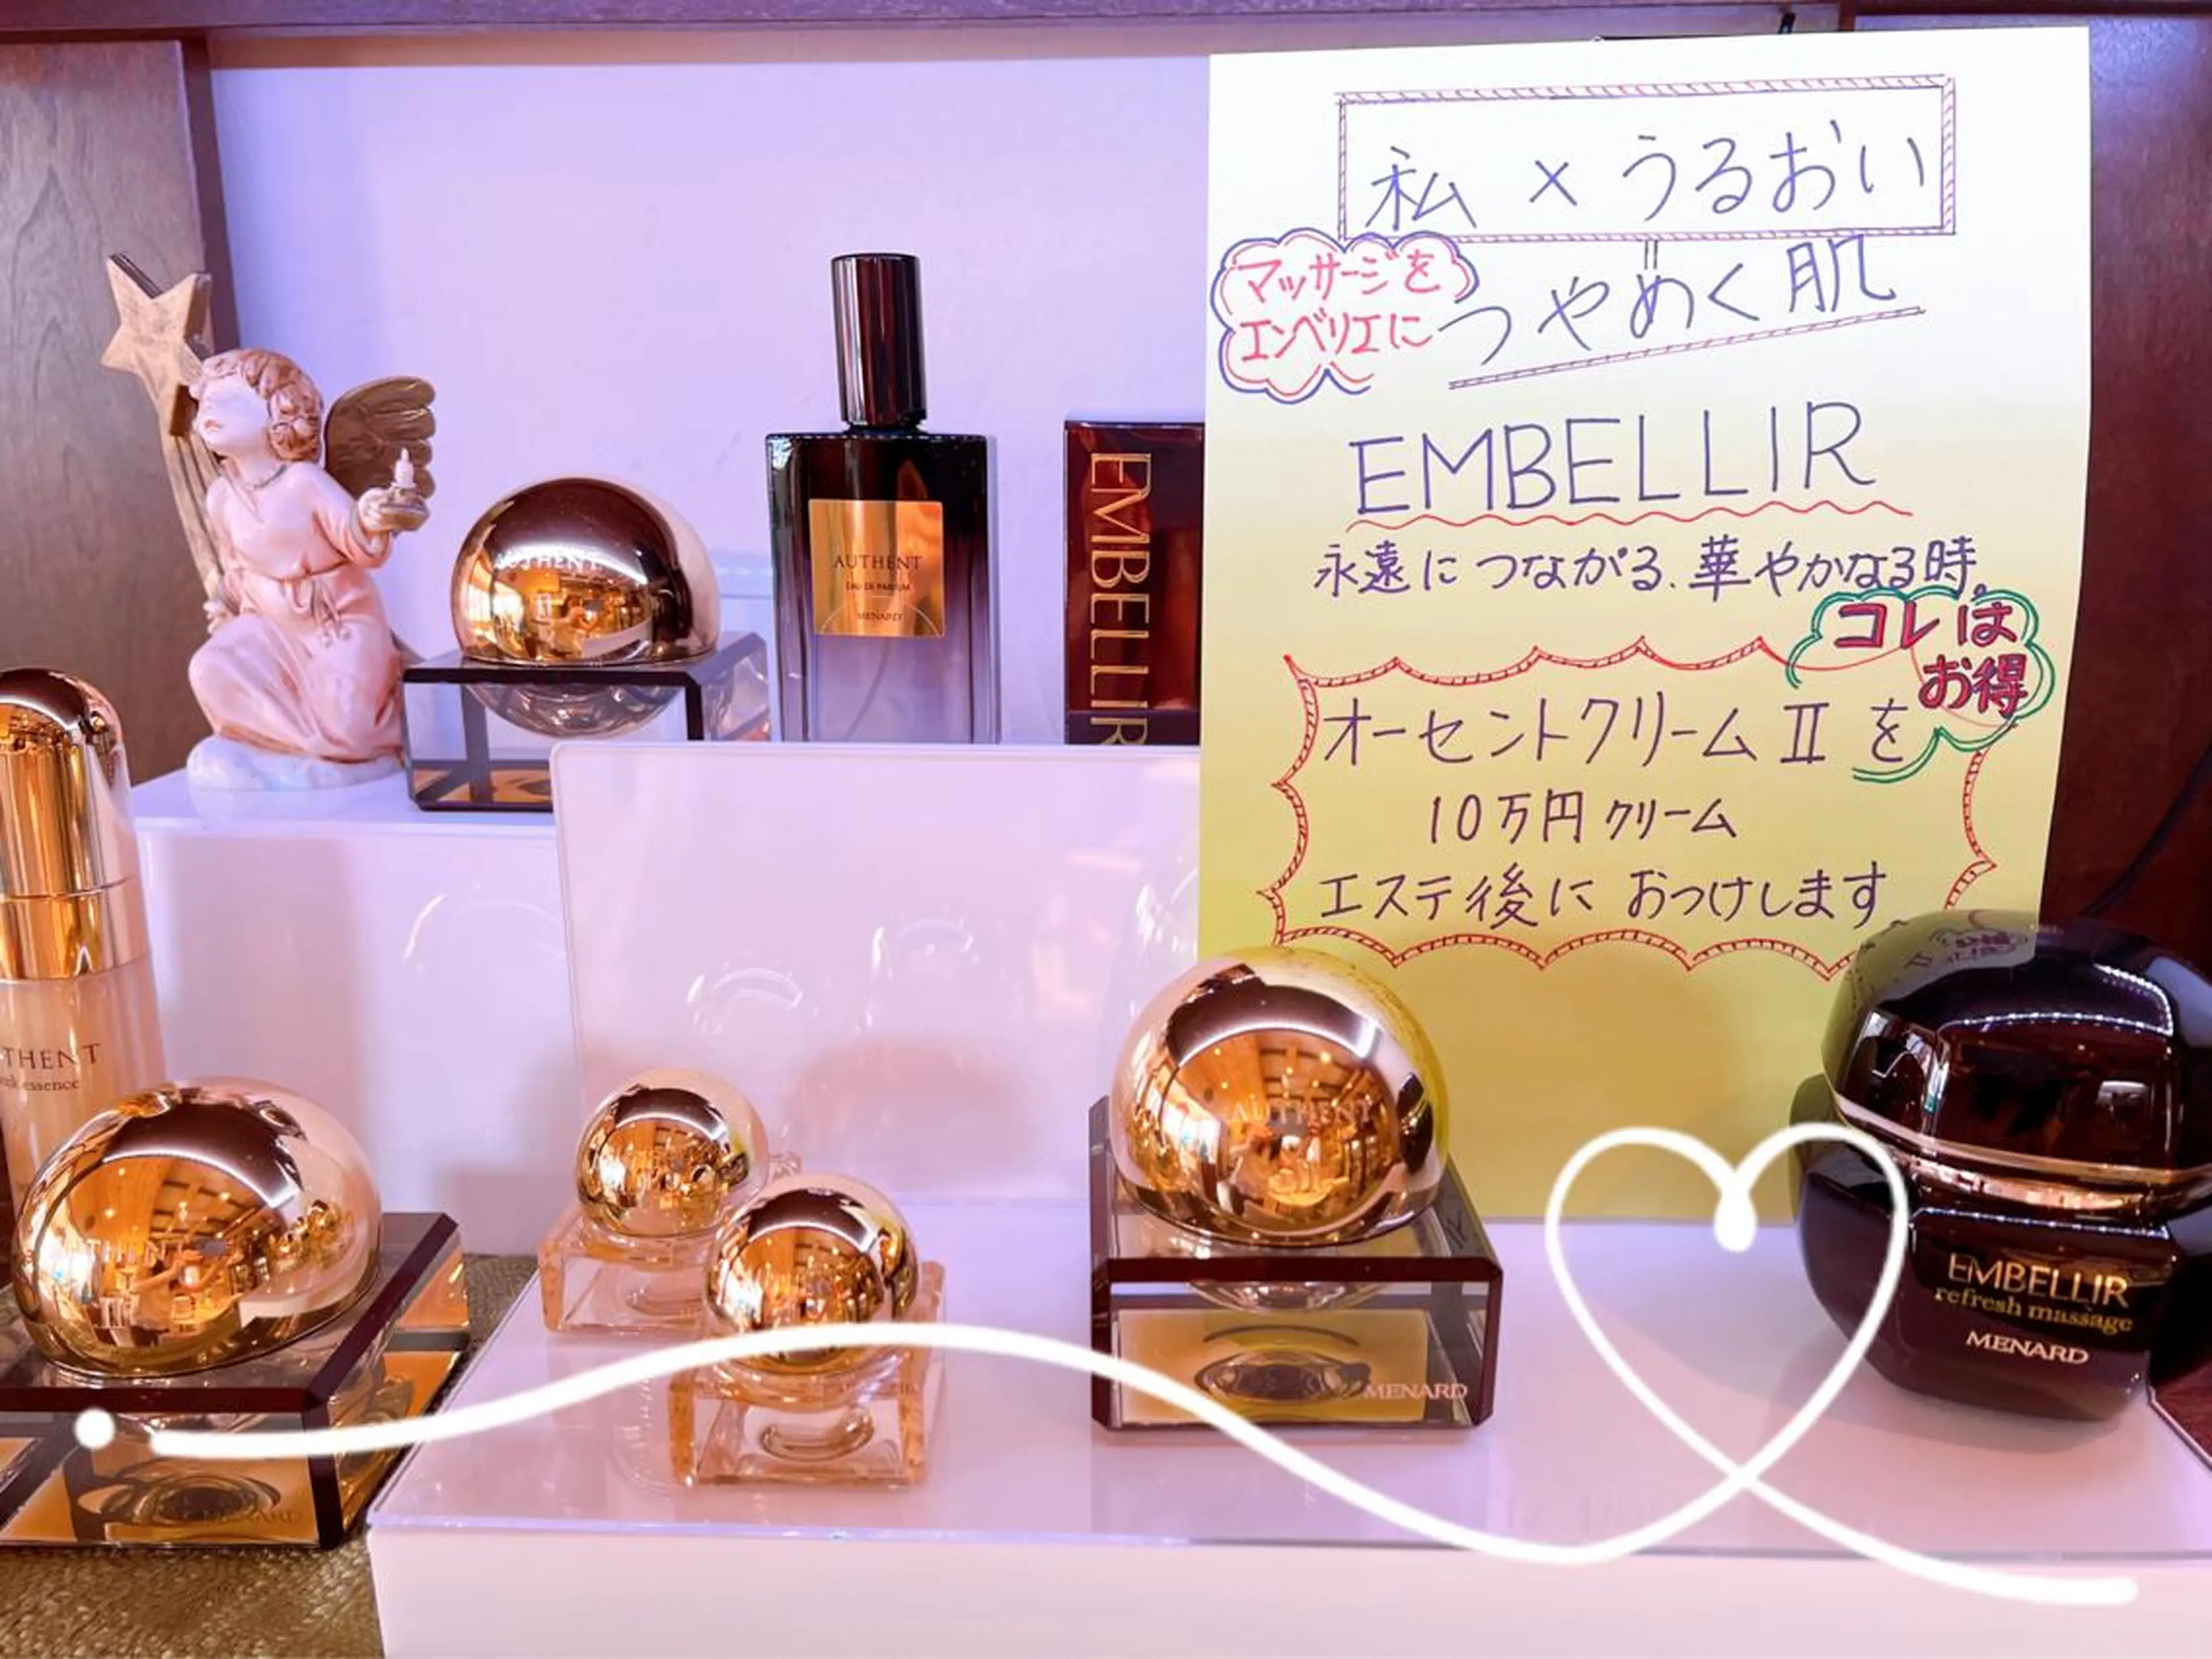 私 × うるおい
=
つやめく肌
マッサージを
エンベリエに
EMBELLIR
永遠につながる、華やかな3時。
コレは
お得
オーセントクリームⅡ を
10万円クリーム
エステ後に おつけします
AUTHENT
AUTHENT
EAU DE PARFUM
MENARD
EMBELLIR
THENT
essence
THENT
AUTHENT
MENARD
MENARD
EMBELLIR
refresh massage
MENARD